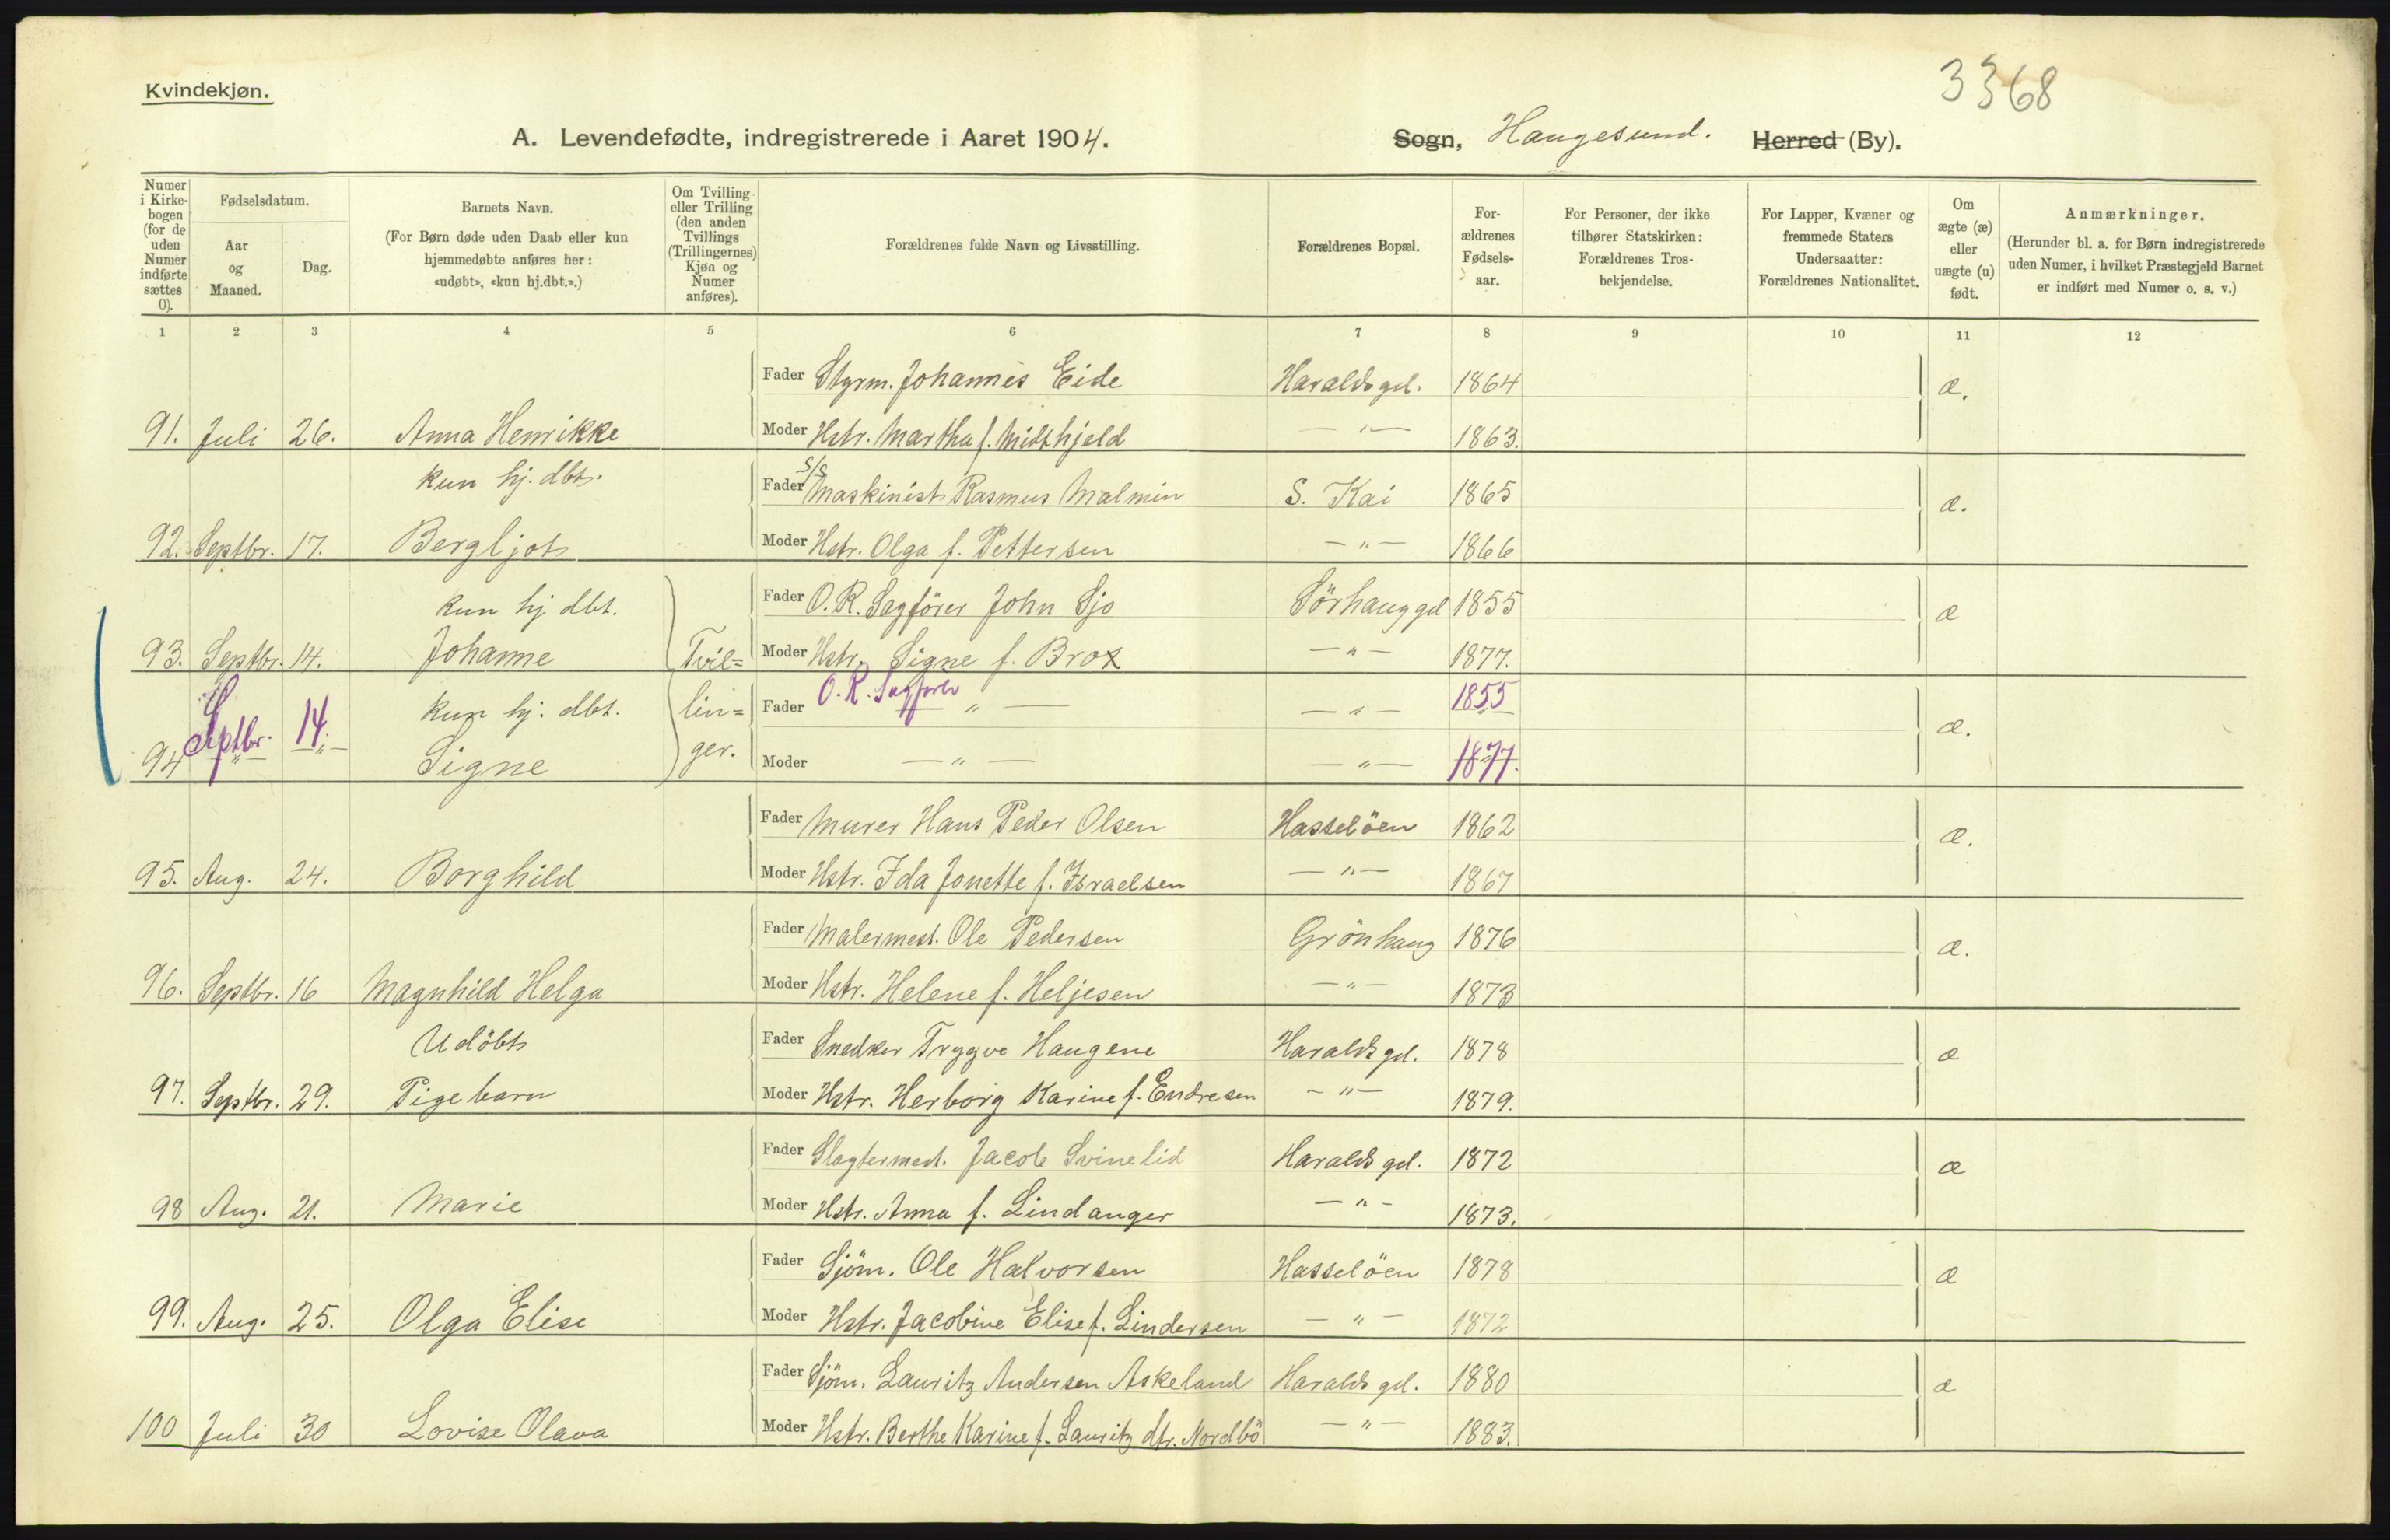 Kvindekjøn.
3368
A. Levendefødte, indregistrerede i Aaret 1904. Sogn, Haugesund. Herred (By).
Numer i Kirkebogen (for de uden Numer indførte sættes 0).
Fødselsdatum.
Aar og Maaned.
Dag.
Barnets Navn.
(For Børn døde uden Daab eller kun hjemmedøbte anføres her: «udøbt», «kun hj.dbt.».)
Om Tvilling eller Trilling (den anden Tvillings (Trillingernes) Kjøn og Numer anføres).
Forældrenes fulde Navn og Livsstilling.
Forældrenes Bopæl.
Forældrenes Fødselsaar.
For Personer, der ikke tilhører Statskirken: Forældrenes Trosbekjendelse.
For Lapper, Kvæner og fremmede Staters Undersaatter: Forældrenes Nationalitet.
Om ægte (æ) eller uægte (u) født.
Anmærkninger.
(Herunder bl. a. for Børn indregistrerede uden Numer, i hvilket Præstegjeld Barnet er indført med Numer o. s. v.)
1 2 3 4 5 6 7 8 9 10 11 12
Fader Styrm. Johannes Eide Haraldsgd. 1864 æ.
91. Juli 26. Anna Henrikke Moder Hstr. Martha f. Midthjeld — " — 1863.
kun hj. dbt. Fader S/S Maskinist Rasmus Malmin S. Kai 1865 æ.
92. Septbr. 17. Bergljot Moder Hstr. Olga f. Pettersen — " — 1866
kun hj dbt. Fader O.R. Sagfører John Sjo Sörhauggd 1855 æ
93. Septbr. 14. Johanne Tvil= Moder Hstr. Signe f. Brox — " — 1877.
kun hj. dbt. lin= Fader O.R. Sagfører " — — " — 1855 æ.
94 Septbr. 14. Signe ger. Moder — " — — " — 1877.
Fader Murer Hans Peder Olsen Hasselöen 1862 æ.
95. Aug. 24. Borghild Moder Hstr. Ida Jonette f. Israelsen — " — 1867
Fader Malermest. Ole Pedersen Grönhaug 1876 æ.
96. Septbr. 16 Magnhild Helga Moder Hstr. Helene f. Heljesen — " — 1873
Udöbt Fader Snedker Trygve Haugene Haraldsgd. 1878 æ
97. Septbr. 29. Pigebarn Moder Hstr. Herborg Karine f. Endresen — " — 1879.
Fader Slagtermest. Jacob Svinelid Haraldsgd. 1872 æ
98 Aug. 21. Marie Moder Hstr. Anna f. Lindanger — " — 1873.
Fader Sjöm. Ole Halvorsen Hasselöen 1878 æ
99. Aug. 25. Olga Elise Moder Hstr. Jacobine Elise f. Lindersen — " — 1872
Fader Sjöm. Lauritz Andersen Askeland Haraldsgd. 1880 æ
100 Juli 30 Lovise Olava Moder Hstr. Berthe Karine f. Lauritz dtr. Nordbö — " — 1883.